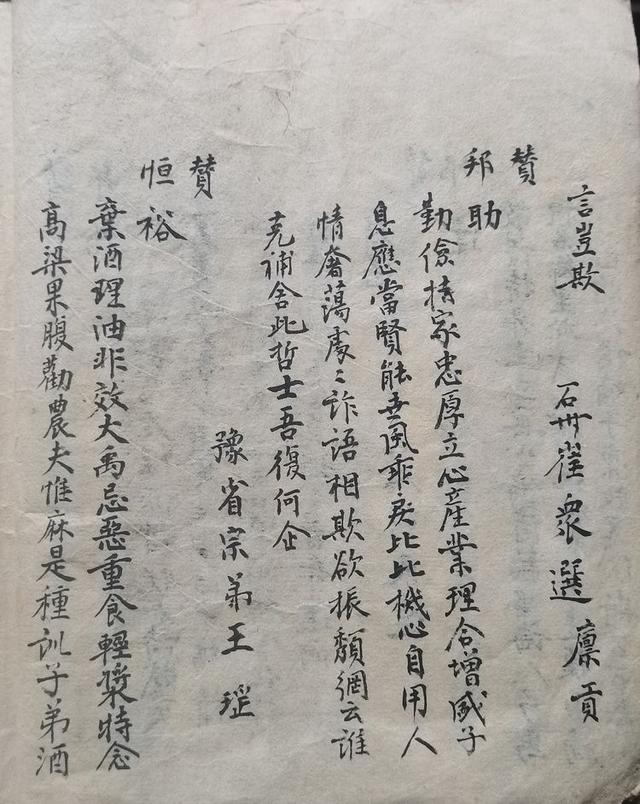 言豈欺
石州崔眾選廩貢
贊
邦助
勤儉持家忠厚立心產業理合增盛子
息應當賢能世風乖戾比比機心自用人
情奢蕩處々詐語相欺欲振頹綱云誰
克補舍此哲士吾復何企
豫省宗弟王瑆
贊
恒裕
棄酒理油非效大禹忌惡重食輕漿特念
高梁果腹勸農夫惟麻是種訓子弟酒